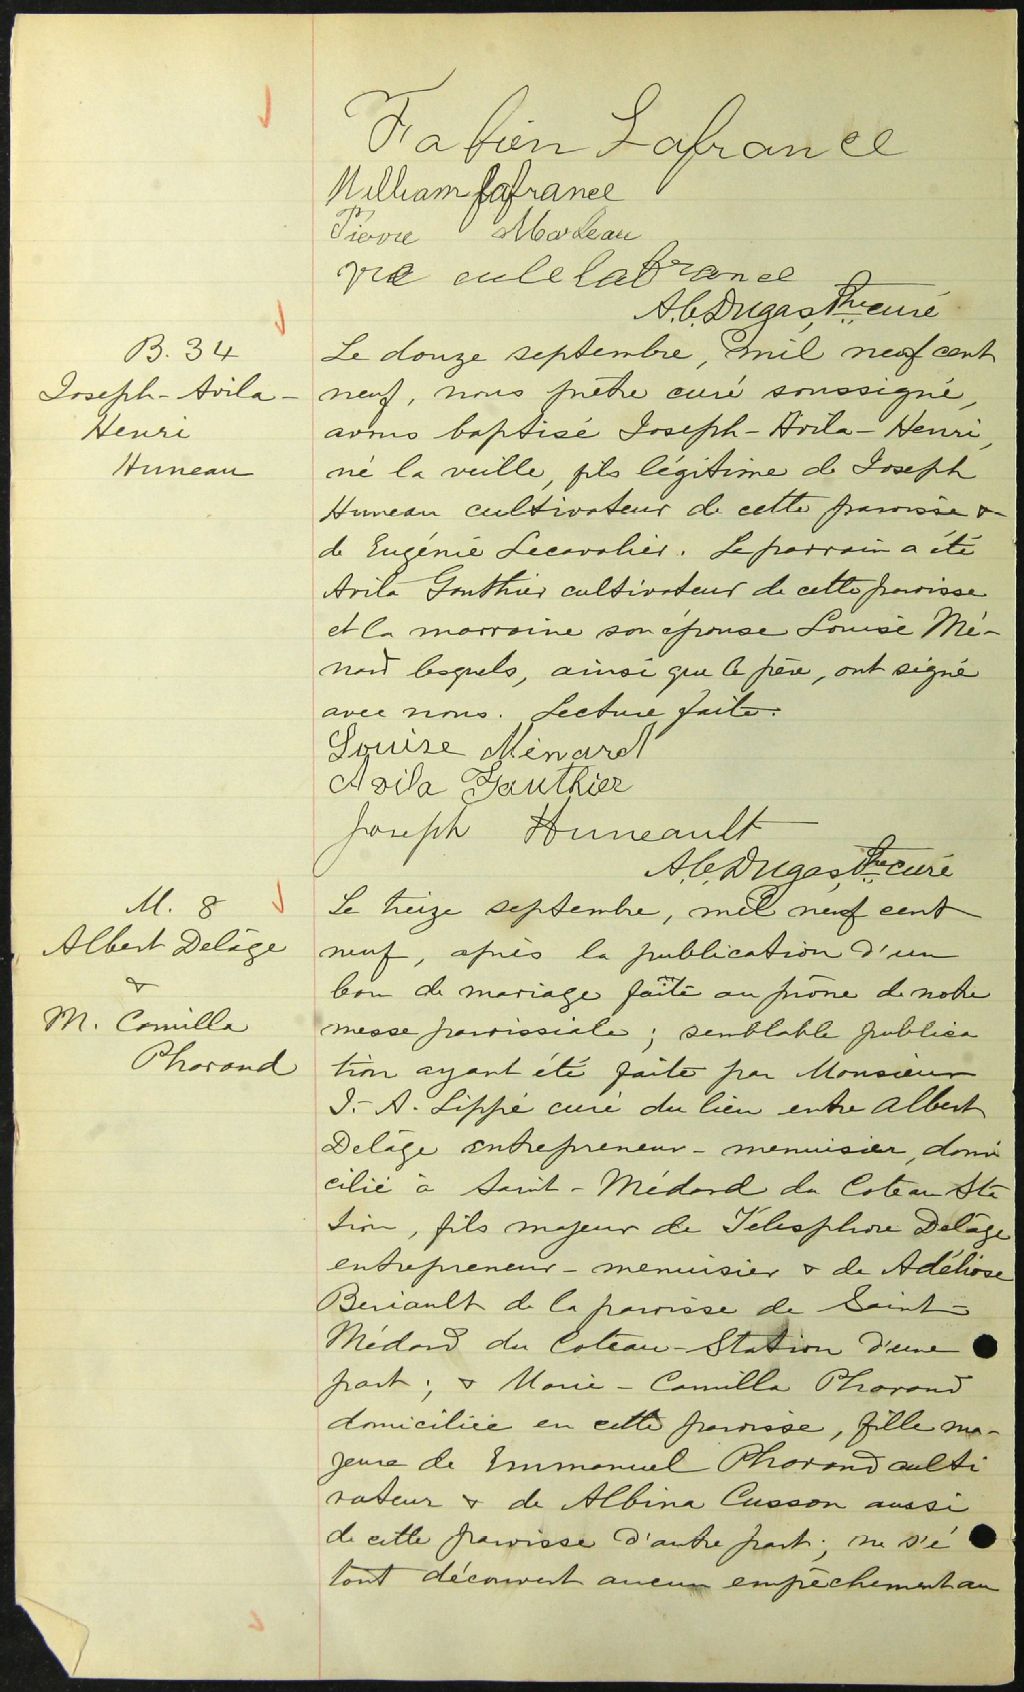 Fabien Lafrance
William Lafrance
Pierre Marleau
Lafrance
A.C. Dugas, Ptre curé
B. 34
Joseph-Avila-
Henri
Huneau
Le douze septembre, mil neuf cent
neuf, nous prêtre curé soussigné,
avons baptisé Joseph-Avila-Henri,
né la veille, fils légitime de Joseph
Huneau cultivateur de cette paroisse &
de Eugénie Lecavalier. Le parrain a été
Avila Gauthier cultivateur de cette paroisse
et la marraine son épouse Louise Mé-
nard lesquels, ainsi que le père, ont signé
avec nous. Lecture faite.
Louise Ménard
Avila Gauthier
Joseph Huneault
A.C. Dugas, Ptre curé
M. 8
Albert Delâge
&
M. Camilla
Pharand
Le treize septembre, mil neuf cent
neuf, après la publication d'un
ban de mariage faite au prône de notre
messe paroissiale; semblable publica
tion ayant été faite par Monsieur
J.-A. Lippé curé du lieu entre Albert
Delâge entrepreneur-menuisier, domi
cilié à Saint-Médard du Coteau Sta
tion, fils majeur de Télesphore Delâge
entrepreneur-menuisier & de Adélise
Beriault de la paroisse de Saint-
Médard du Coteau-Station d'une
part; & Marie-Camilla Pharand
domiciliée en cette paroisse, fille ma-
jeure de Emmanuel Pharand culti
vateur & de Albina Cusson aussi
de cette paroisse d'autre part; ne s'é
tant découvert aucun empêchement au